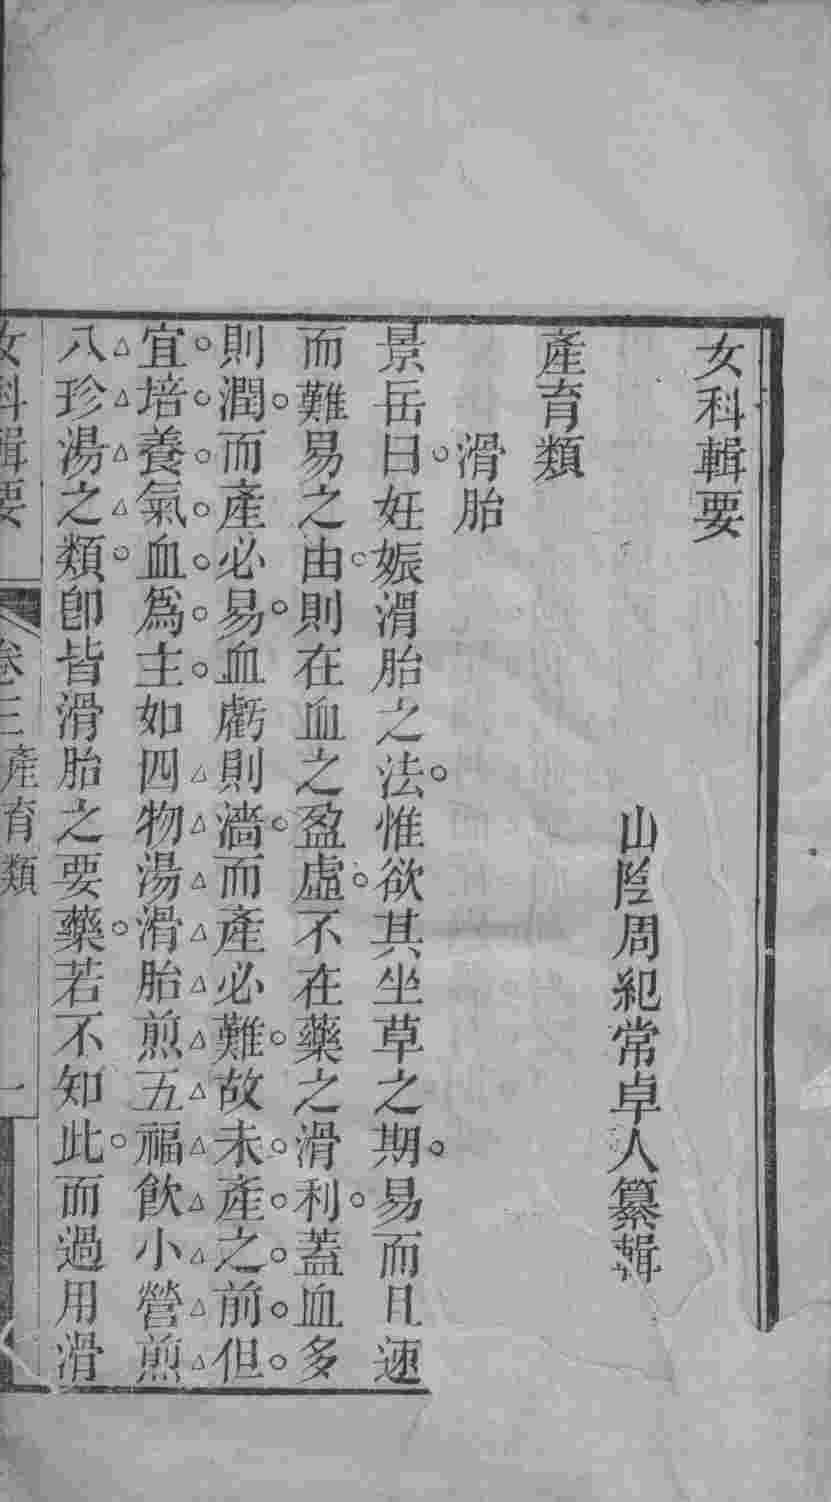 女科輯要
山陰周紀常卓人纂輯
產育類
滑胎
景岳曰妊娠滑胎之法惟欲其坐草之期易而且速
而難易之由則在血之盈虛不在藥之滑利蓋血多
則潤而產必易血虧則濇而產必難故未產之前但
宜培養氣血爲主如四物湯滑胎煎五福飲小營煎
八珍湯之類卽皆滑胎之要藥若不知此而過用滑
女科輯要
卷三產育類
一